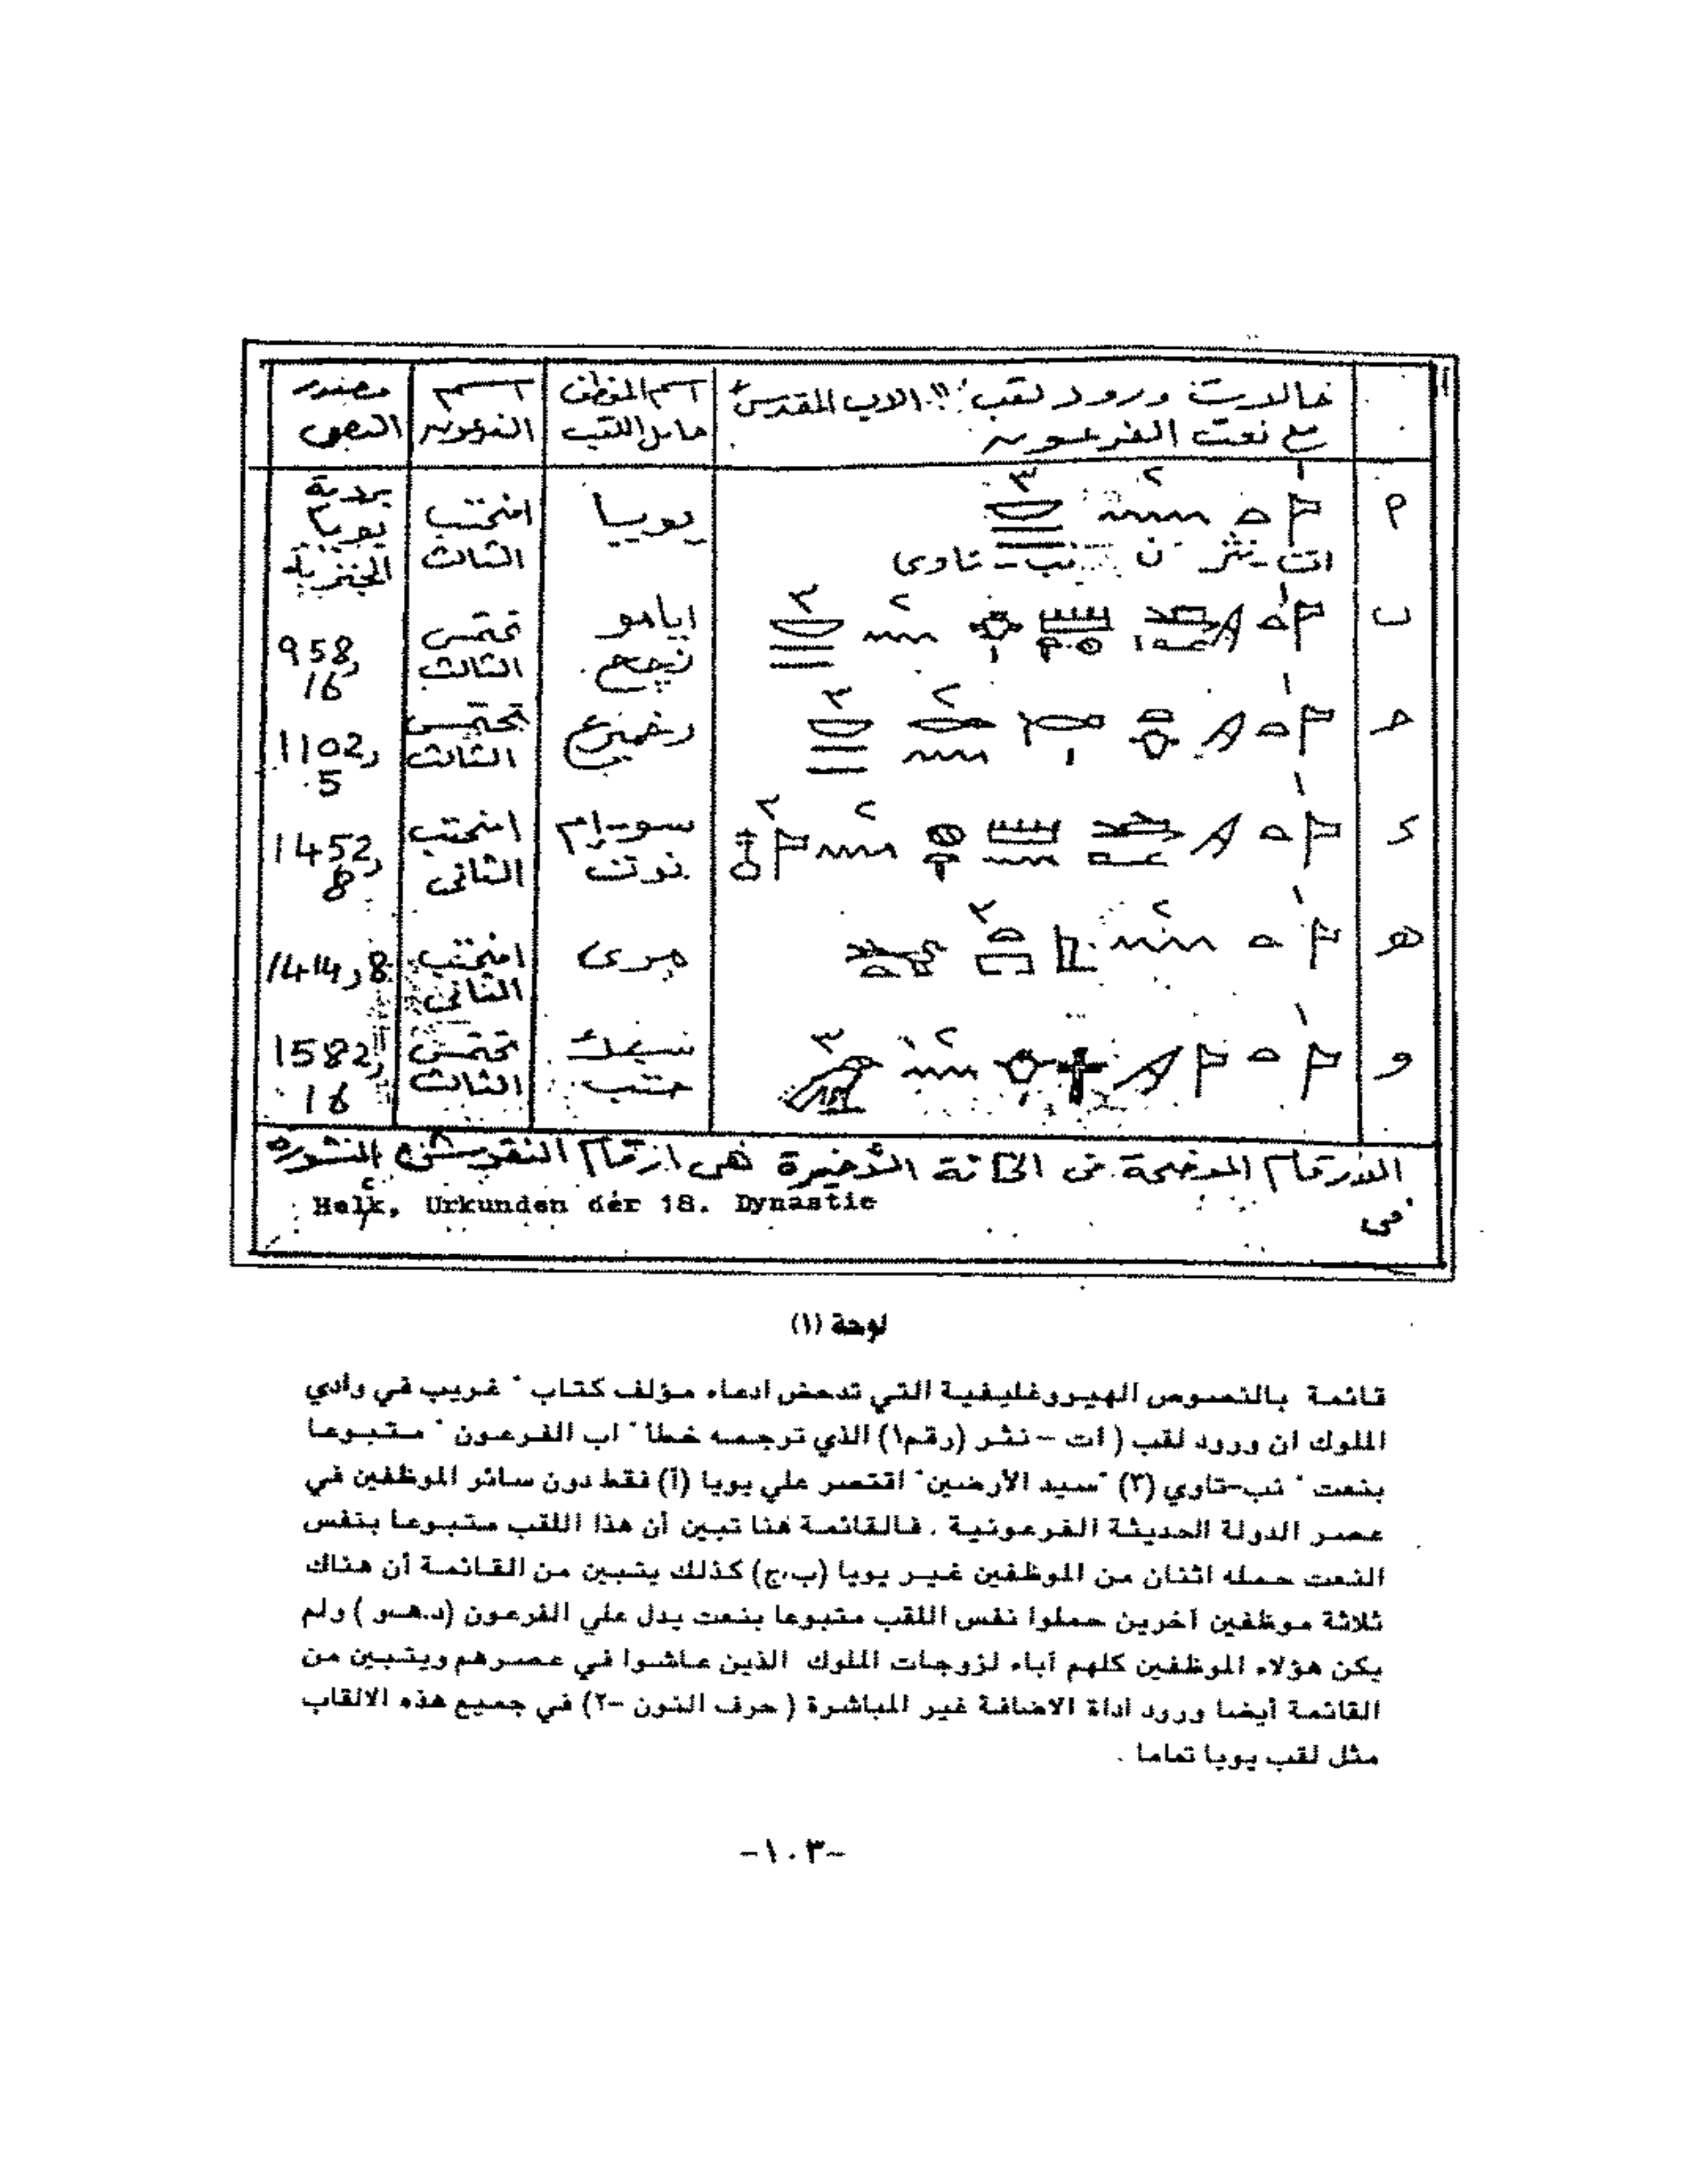 حالات ورود لقب "الاب المقدس" اسم الموظف اسم مصدر
مع نعت الفرعون حامل اللقب الفرعون النص
١ ٢ ٣
أ يويا امنحتب الثالث بردية يويا الجنزية
ات - نثر ن نب - تاوى
١ ٢ ٣
ب تحتمس الثالث 958, 16
١ ٢ ٣
ج رخميرع تحتمس الثالث 1102, 5
١ ٢ ٣
د امنحتب الثانى 1452, 8
١ ٢ ٣
هـ مرى امنحتب الثانى 1414, 8
١ ٢ ٣
و حتب تحتمس الثالث 1582, 16
الأرقام الموضحة فى الخانة الأخيرة هى ارقام النقوش المنشورة
فى Helk, Urkunden der 18. Dynastie
لوحة (١)
قائمة بالنصوص الهيروغليفية التي تدحض ادعاء مؤلف كتاب " غريب في وادي
الملوك ان ورود لقب ( ات – نثر (رقم١) الذي ترجمه خطأ " اب الفرعون " متبوعا
بنعت " نب-تاوي (٣) "سيد الأرضين" اقتصر علي يويا (أ) فقط دون سائر الموظفين في
عصر الدولة الحديثة الفرعونية . فالقائمة هنا تبين أن هذا اللقب متبوعا بنفس
النعت حمله اثنان من الموظفين غير يويا (ب،ج) كذلك يتبين من القائمة أن هناك
ثلاثة موظفين آخرين حملوا نفس اللقب متبوعا بنعت يدل علي الفرعون (د.هـ.و ) ولم
يكن هؤلاء الموظفين كلهم آباء لزوجات الملوك الذين عاشوا في عصرهم ويتبين من
القائمة أيضا ورود اداة الاضافة غير المباشرة ( حرف النون -٢) في جميع هذه الالقاب
مثل لقب يويا تماما .
-١٠٣-